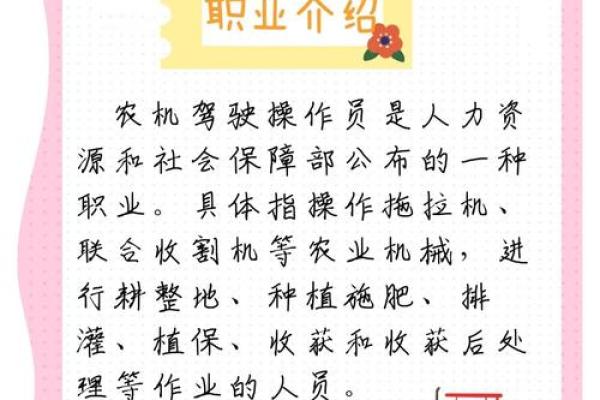 职业介绍
农机驾驶操作员是人力资
源和社会保障部公布的一种
职业。具体指操作拖拉机、
联合收割机等农业机械，进
行耕整地、种植施肥、排
灌、植保、收获和收获后处
理等作业的人员。